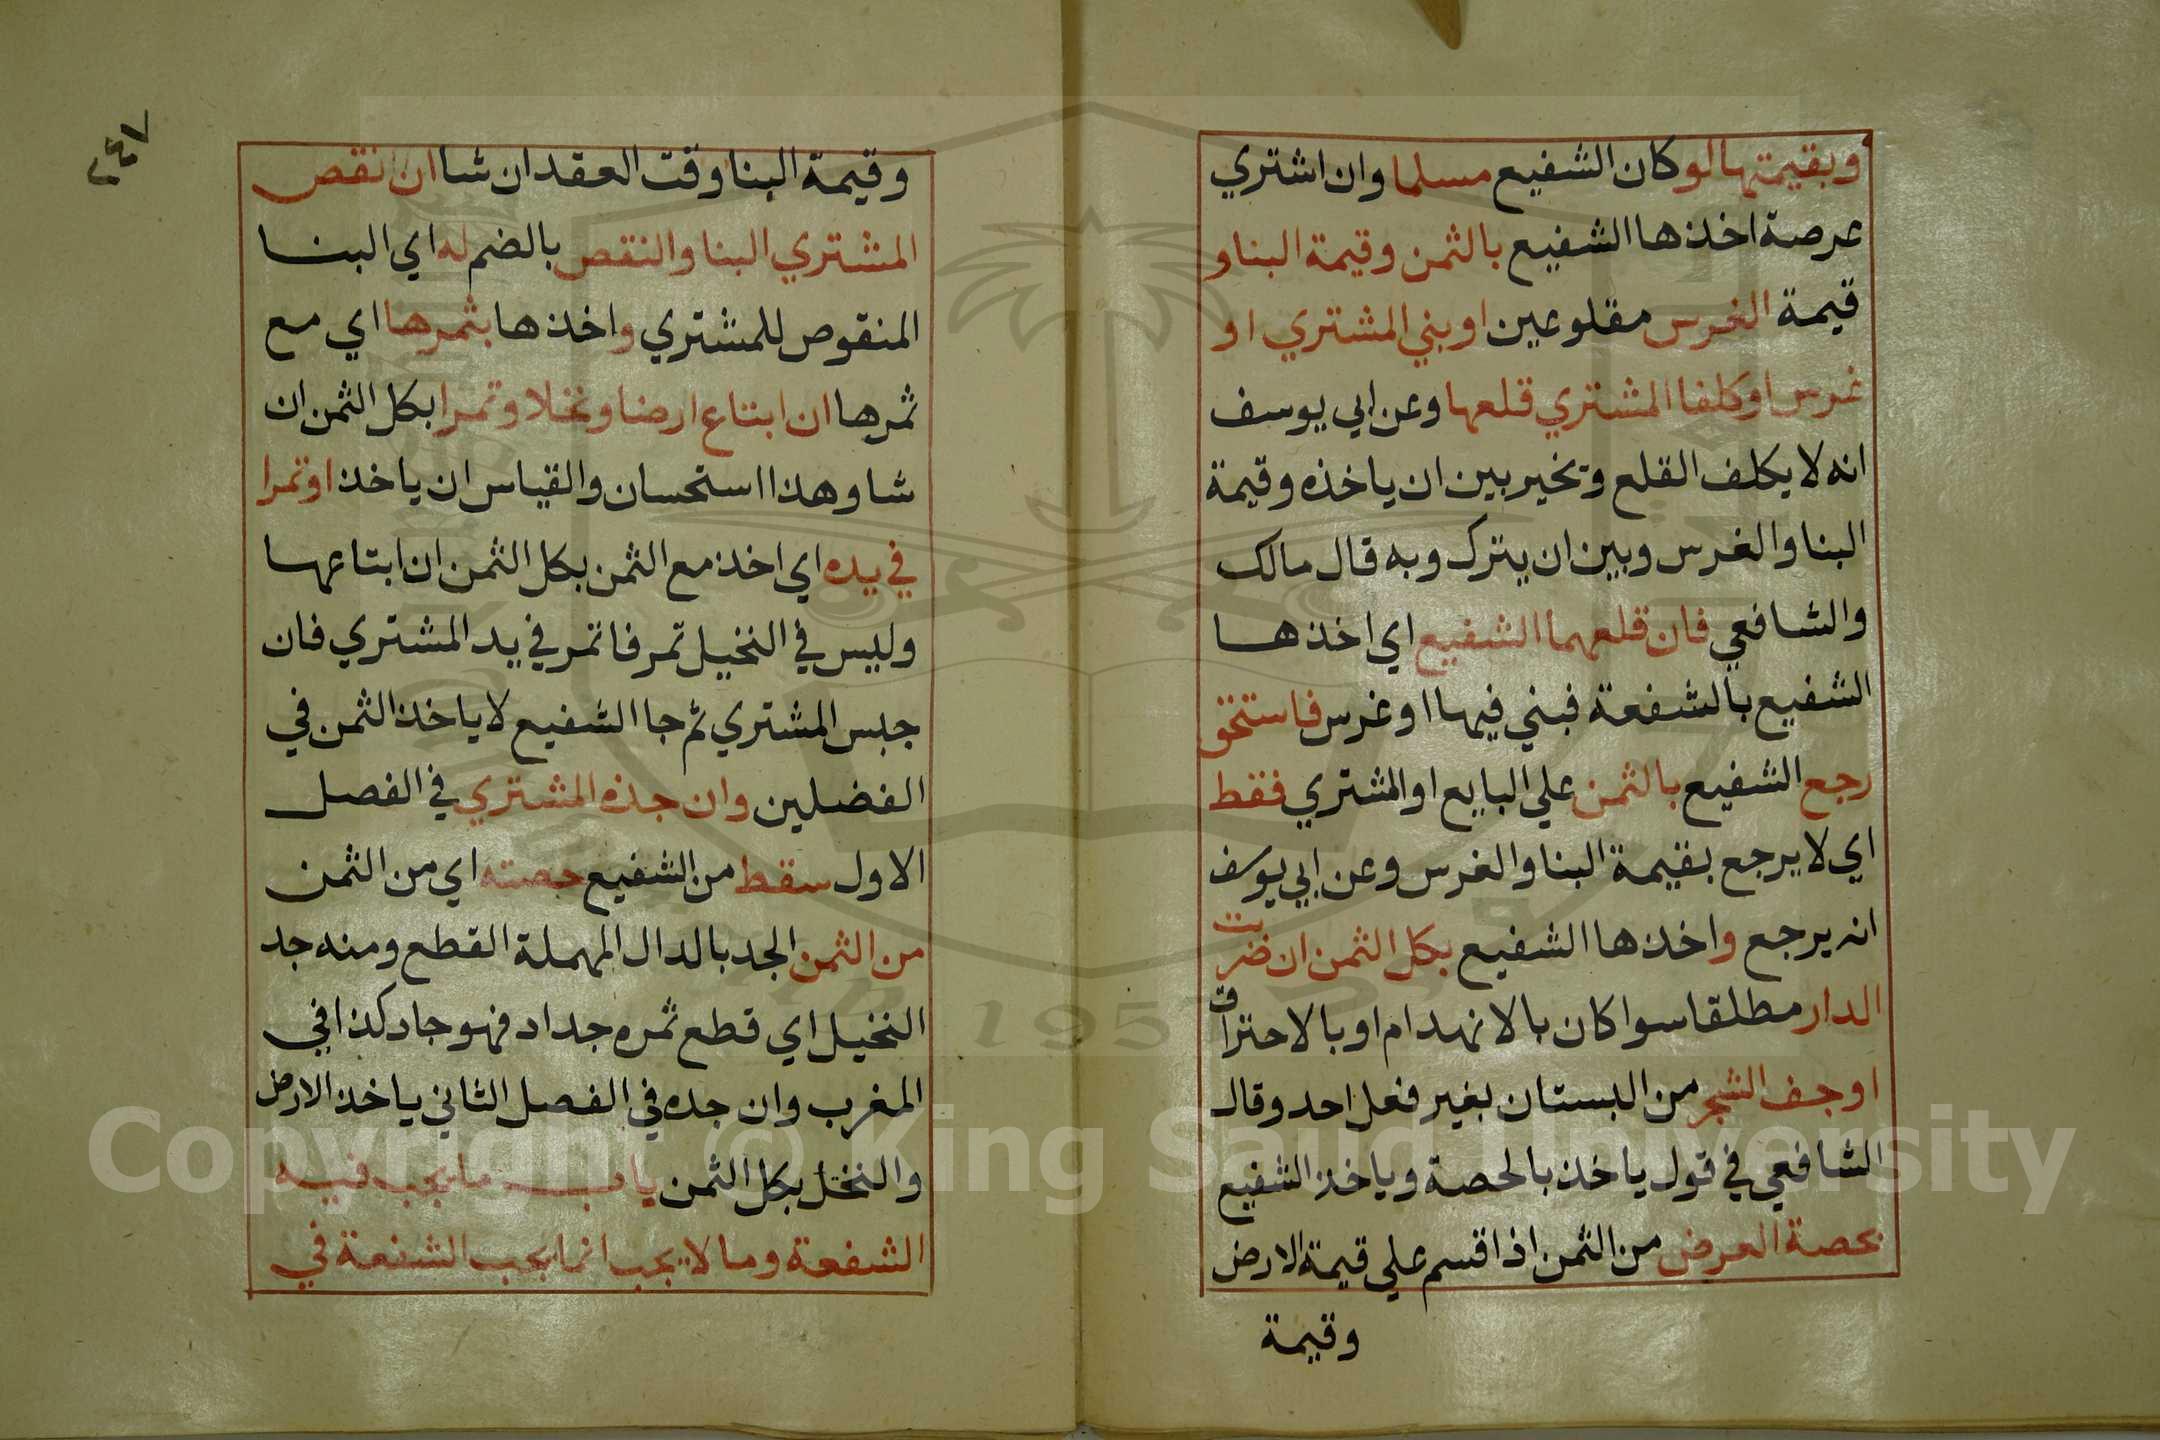 وبقيمتها لو كان الشفيع مسلما وان اشتري
عرصة اخذها الشفيع بالثمن وقيمة البنا و
قيمة الغرس مقلوعين او بني المشتري او
غرس او كلفا المشتري قلعها وعن ابي يوسف
انه لا يكلف القلع وتخير بين ان ياخذه وقيمة
البنا والغرس وبين ان يترك وبه قال مالك
والشافعي فان قلعهما الشفيع اي اخذها
الشفيع بالشفعة فبني فيها او غرس فاستحق
رجع الشفيع بالثمن علي البايع او المشتري فقط
اي لا يرجع بقيمة البنا والغرس وعن ابي يوسف
انه يرجع واخذها الشفيع بكل الثمن ان خربت
الدار مطلقا سوا كان بالانهدام او بالاحتراق
او جف الشجر من البستان بغير فعل احد وقال
الشافعي في قول ياخذ بالحصة وياخذ الشفيع
بحصة العرض من الثمن اذا قسم علي قيمة الارض
وقيمة
٢٤٧
وقيمة البنا وقت العقد ان شا ان نقص
المشتري البنا والنقص بالضم له اي البنا
المنقوص للمشتري واخذها بثمرها اي مع
ثمرها ان ابتاع ارضا ونخلا وتمرا بكل الثمن ان
شا وهذا استحسان والقياس ان ياخذ او تمرا
في يده اي اخذ مع الثمن بكل الثمن ان ابتاعها
وليس في النخيل تمر فاتمر في يد المشتري فان
جبس المشتري ثم جا الشفيع لا ياخذ الثمن في
الفضلين وان جذه المشتري في الفصل
الاول سقط من الشفيع حصته اي من الثمن
من الثمن الجد بالدال المهملة القطع ومنه جد
النخيل اي قطع ثمره جداد فهو جاد كذا في
المغرب وان جده في الفصل الثاني ياخذ الارض
والنخل بكل الثمن باب ما يجب فيه
الشفعة وما لا يجب انما يجب الشفعة في
Copyright © King Saud University
1957